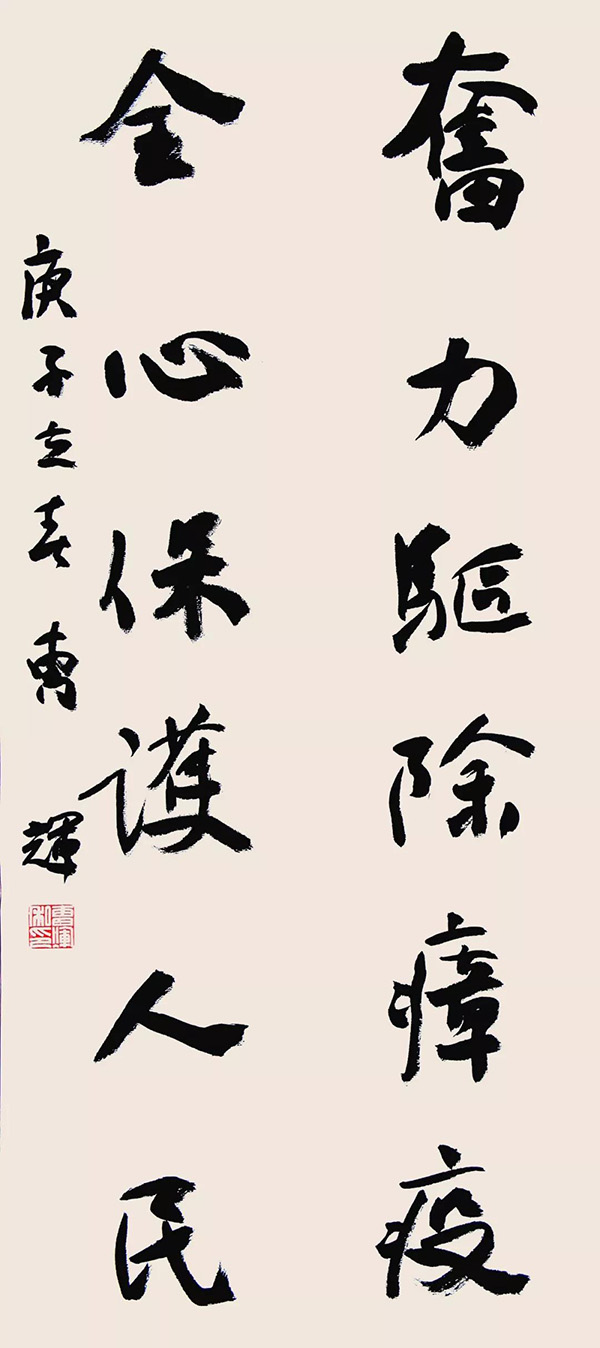 奮力驅除瘴疫
全心保護人民
庚子立春
輝